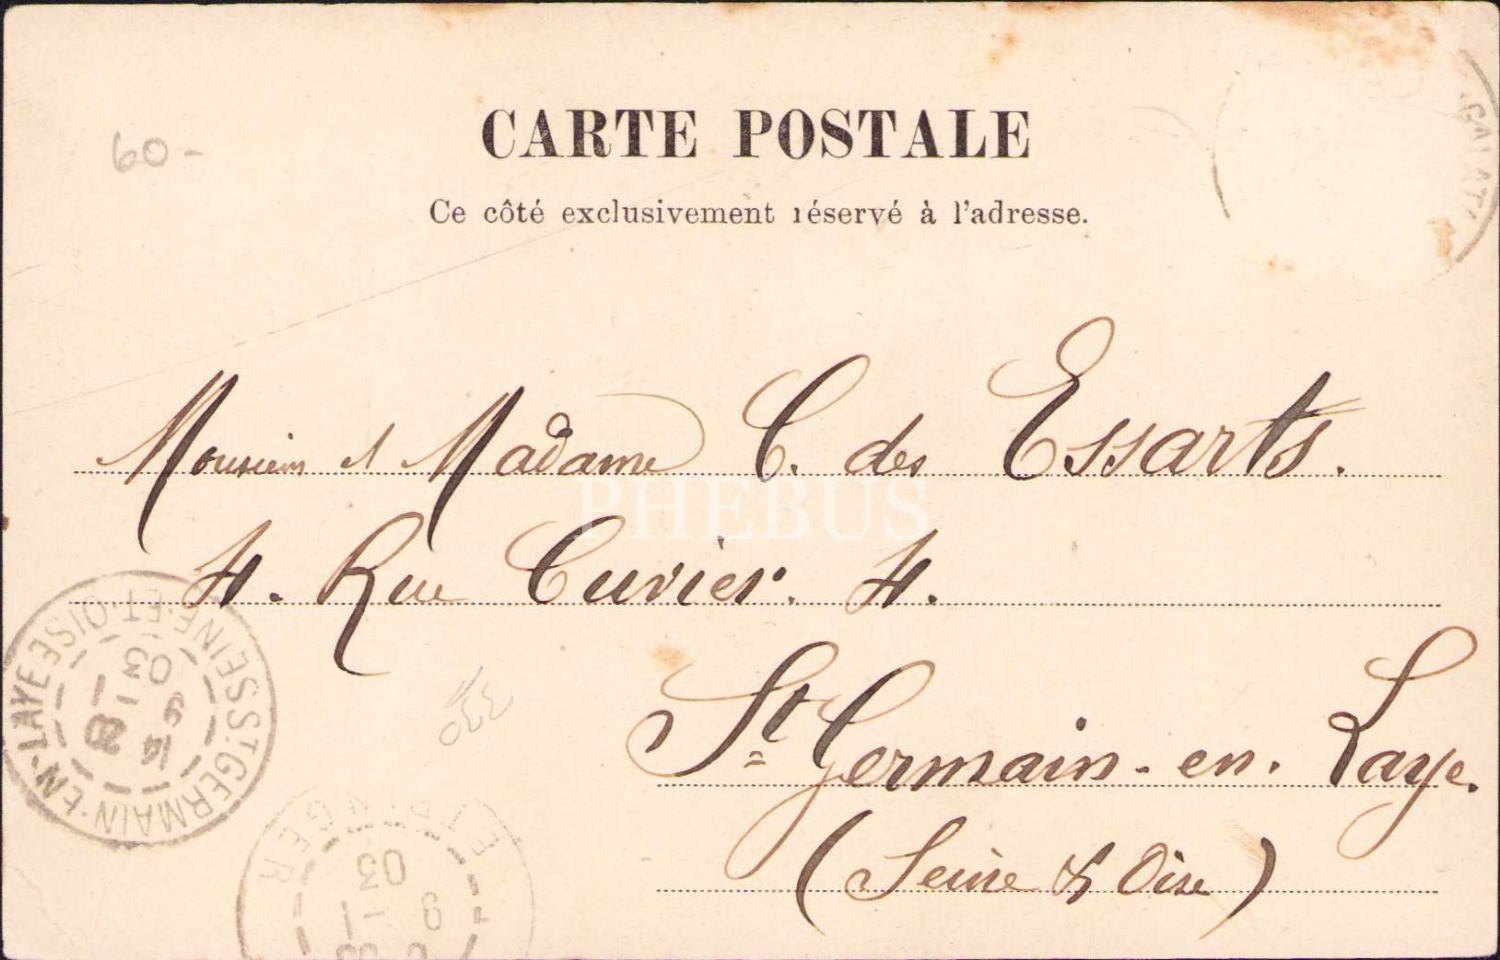 60-
CARTE POSTALE
Ce côté exclusivement réservé à l'adresse.
GALATA
Monsieur et Madame C. des Essarts.
PHEBUS
4. Rue Cuvier. 4.
St Germain-en-Laye.
(Seine & Oise)
ST GERMAIN-EN-LAYE SEINE-ET-OISE
14
9 -1
03
ETRANGER
9 -1
03